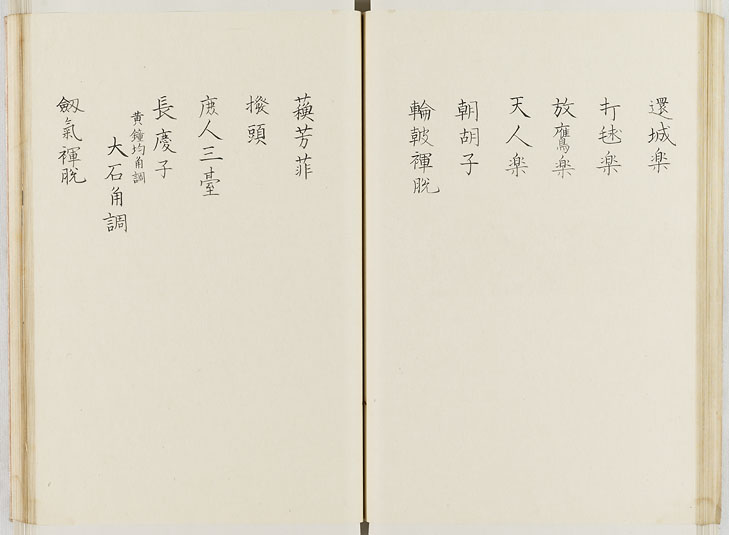 還城楽
打毬楽
放鷹楽
天人楽
朝胡子
輪皷褌脱
蘓芳菲
撥頭
庶人三臺
長慶子
黄鐘均角調
大石角調
劔氣褌脱